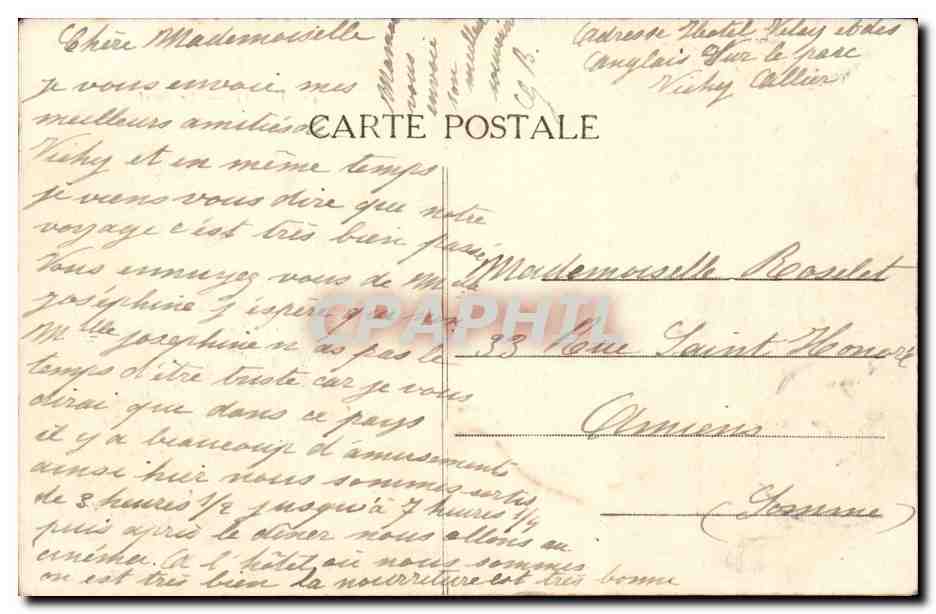 Chère Mademoiselle
je vous envoie mes
meilleurs amitiés de
Vichy et en même temps
je viens vous dire que notre
voyage c'est très bien passé
Vous ennuyez vous de Mlle
joséphine j'espère que non
Mlle josephine n'as pas le
temps d'être triste car je vous
dirai que dans ce pays
il y a beaucoup d'amusements
ainsi hier nous sommes sortis
de 3 heures 1/2 jusqu'à 7 heures 1/4
puis après le diner nous allons au
cinéma. A l'hôtel où nous sommes
on est très bien la nourriture est très bonne
Maman
vous
envoie
son meilleur
souvenir
G. B.
Adresse Hotel Velay et des
Anglais Sur le parc
Vichy Allier
CARTE POSTALE
Mademoiselle Roselet
33 Rue Saint Honoré
Amiens
(Somme)
CPAPHIL